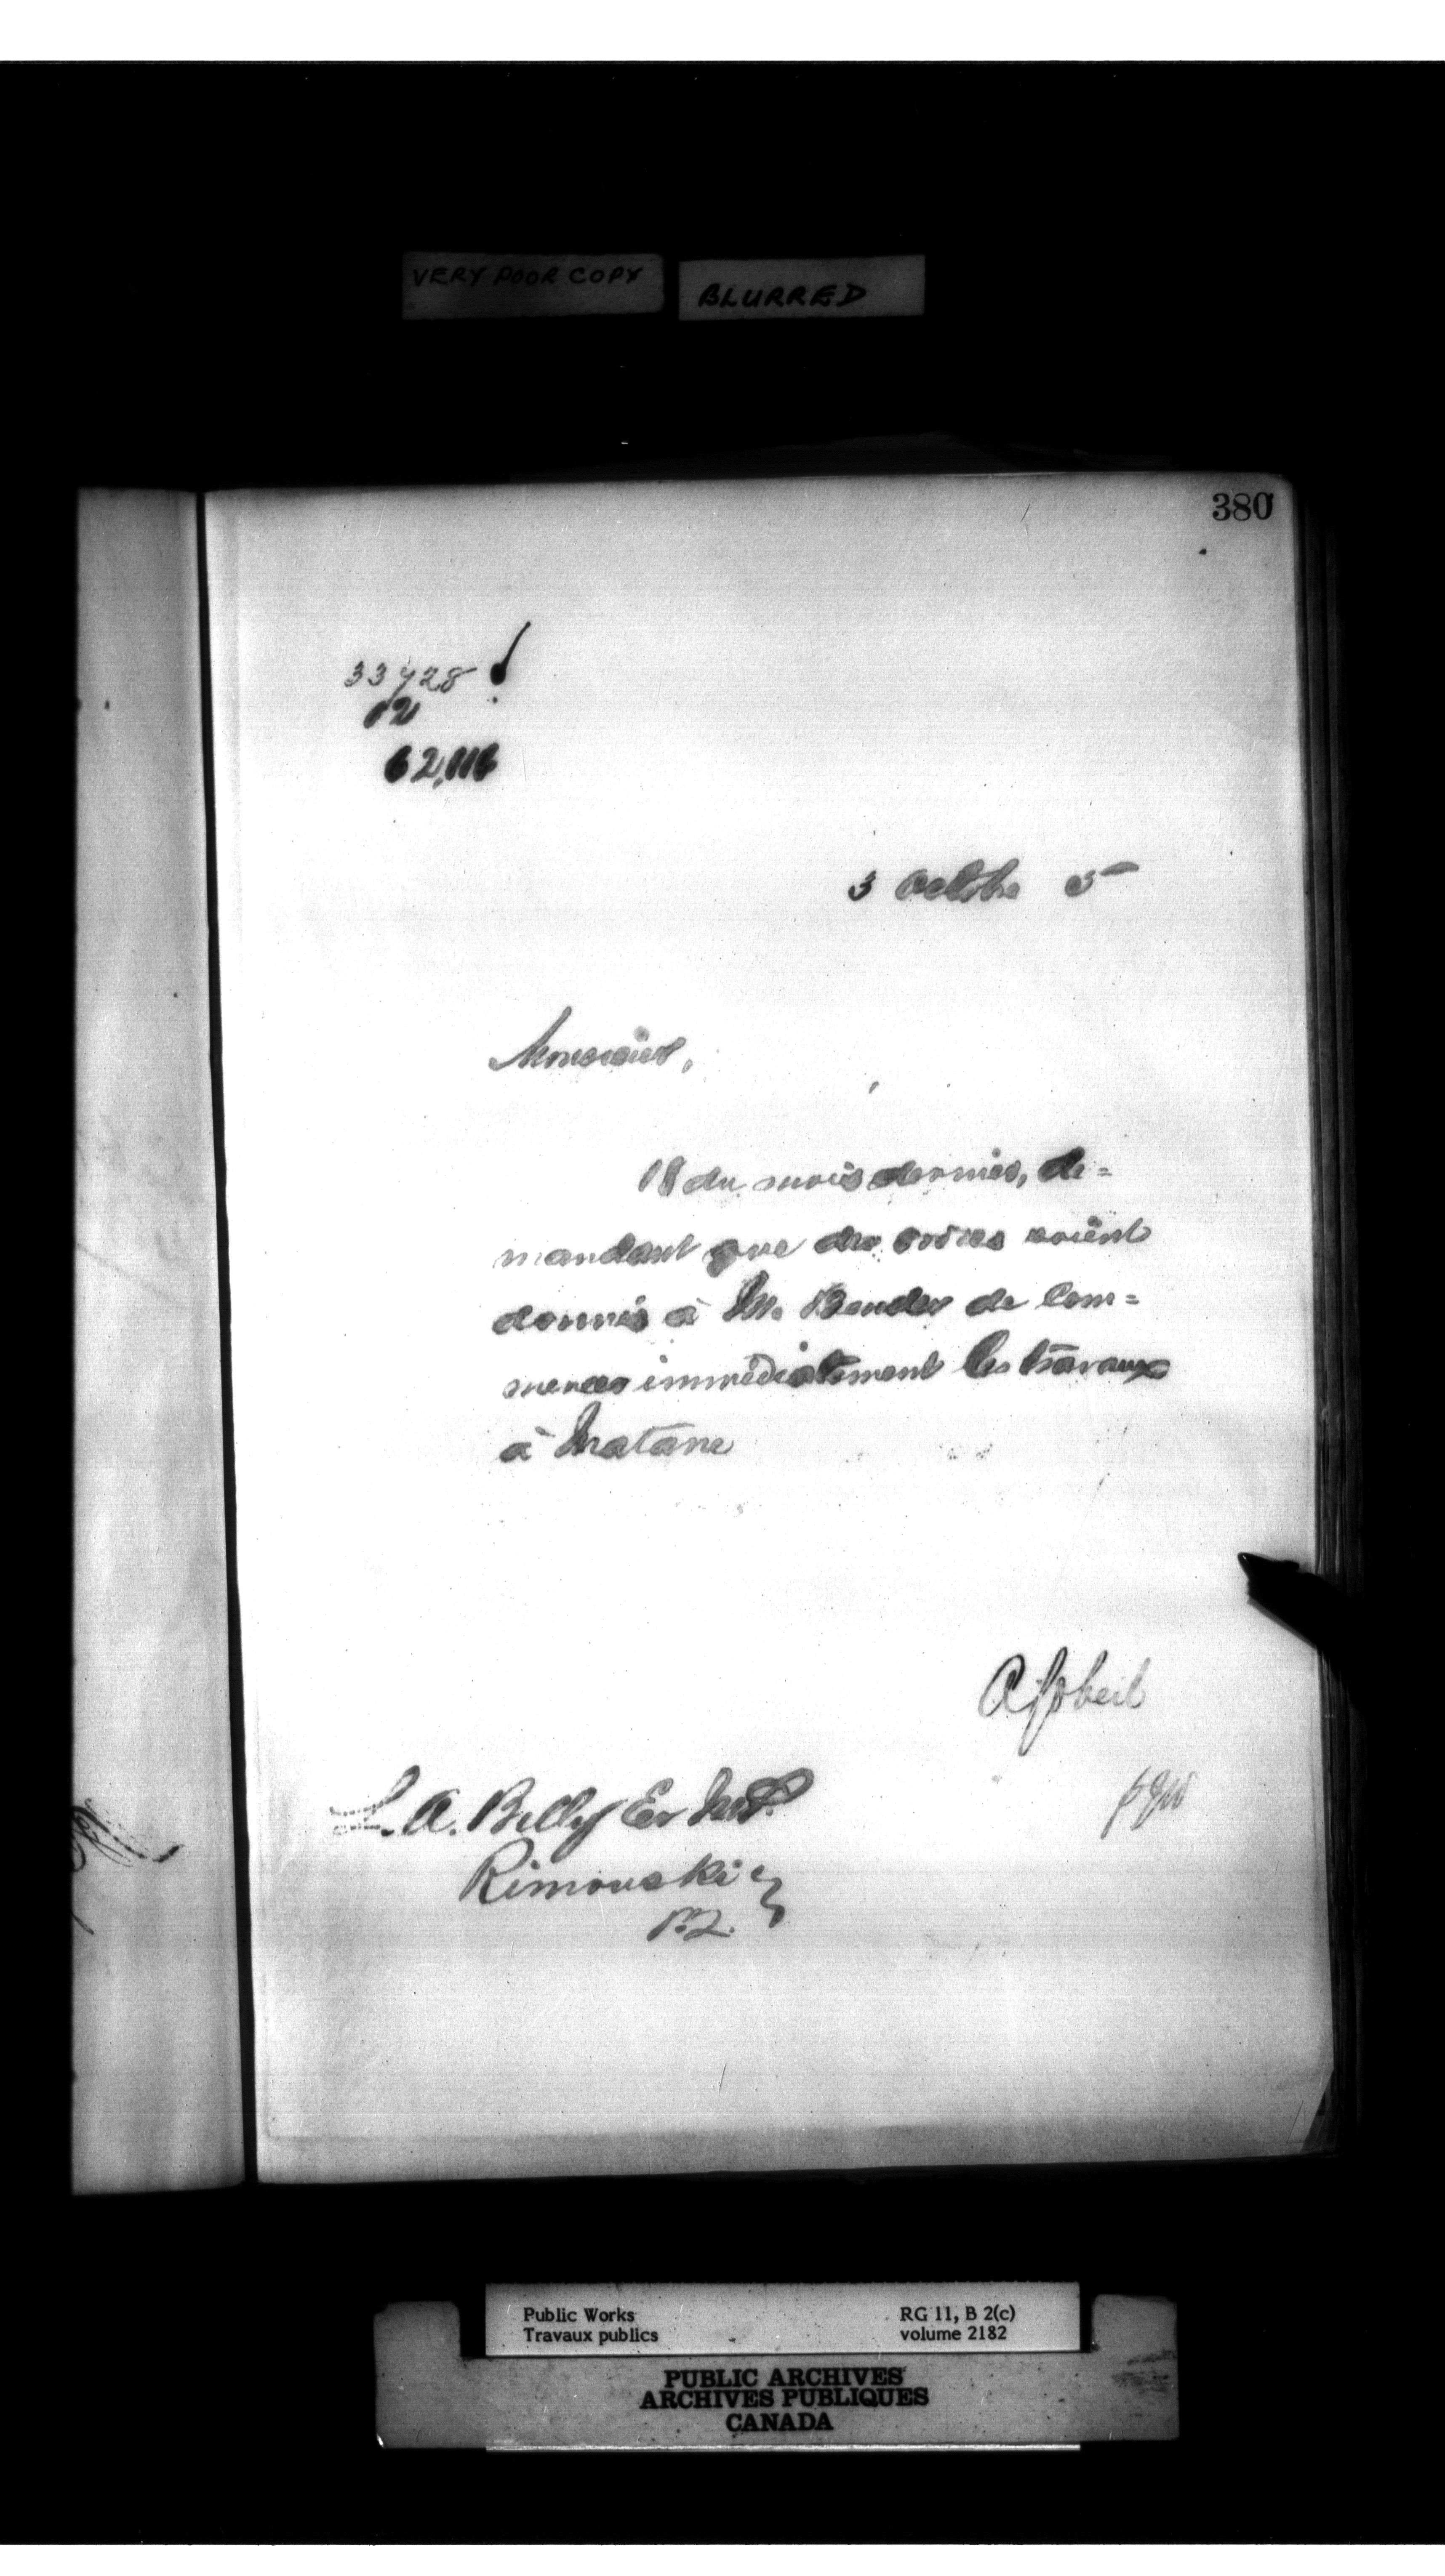 VERY POOR COPY
BLURRED
380
33428
62,116
3 Octobre 5
Monsieur,
18 du mois dernier, de=
mandant que des ordres soient
donnés à M. Bender de Com=
mencer immédiatement les travaux
à Matane
A Gobeil
L. A. Billy Er M.P.
Rimouski
P.Q.
Public Works
Travaux publics
RG 11, B 2(c)
volume 2182
PUBLIC ARCHIVES
ARCHIVES PUBLIQUES
CANADA